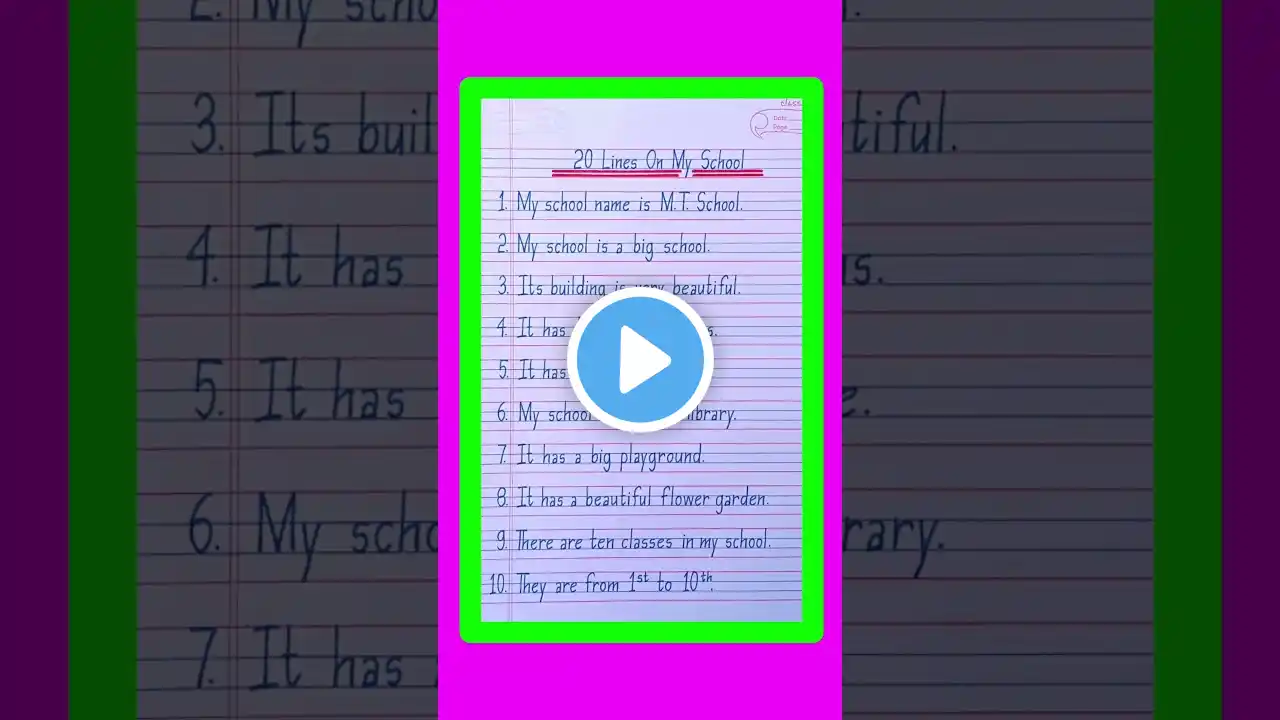 class
Date
Page
20 Lines On My School
1. My school name is M.T. School.
2. My school is a big school.
3. Its building is very beautiful.
4. It has
5. It has
6. My school library.
7. It has a big playground.
8. It has a beautiful flower garden.
9. There are ten classes in my school.
10. They are from 1st to 10th.
2. My
3. Its
4. It has
5. It has
6. My
7. It has